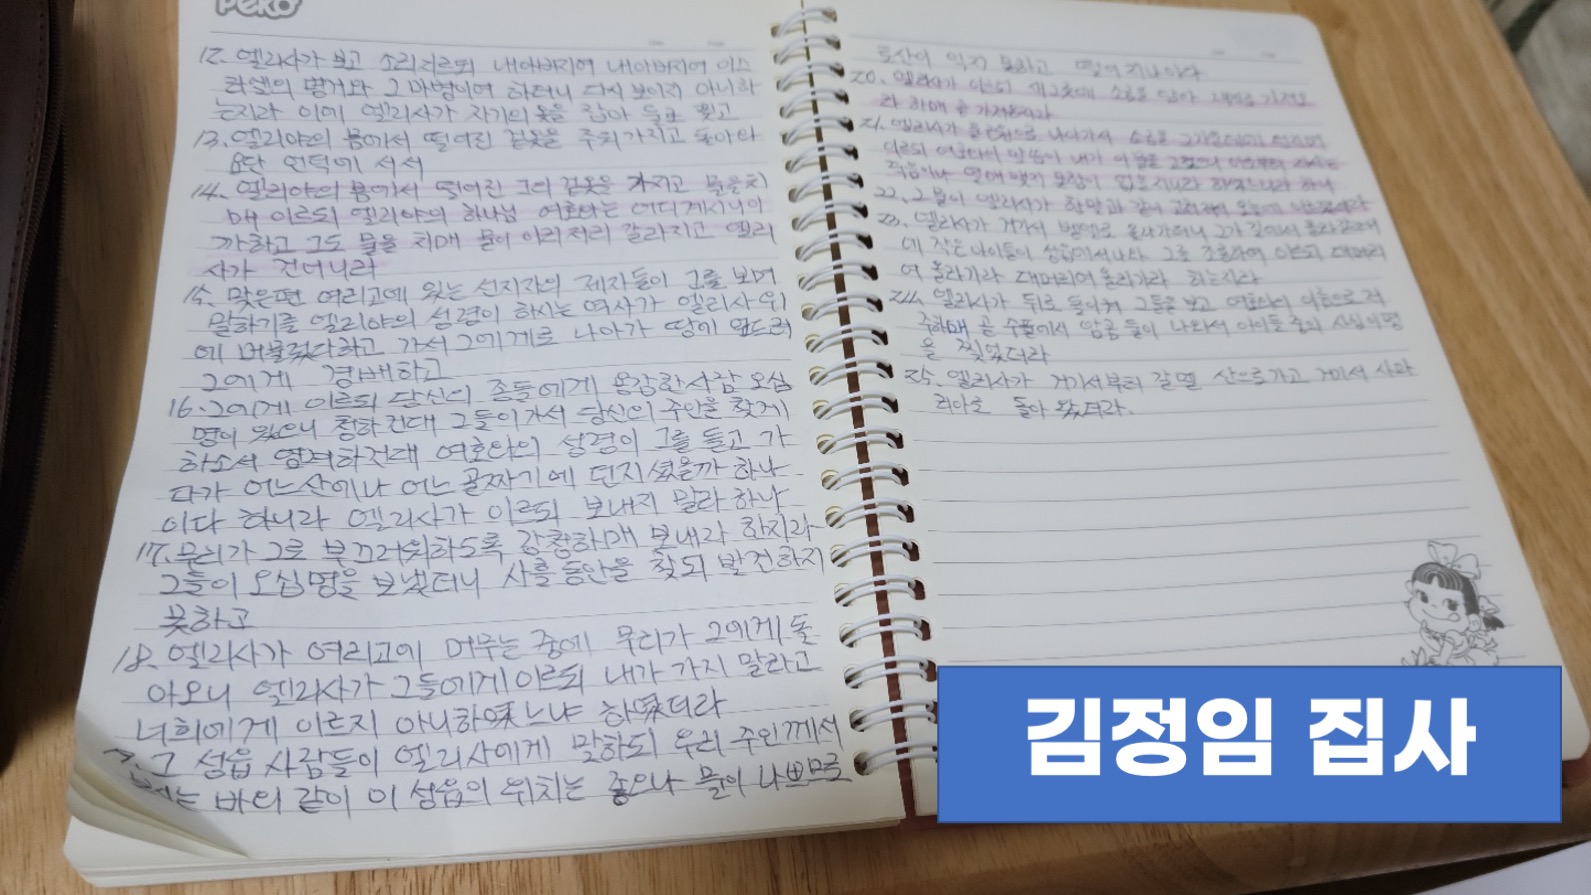 Peko
12. 엘리사가 보고 소리지르되 내아버지여 내아버지여 이스
라엘의 병거와 그 마병이여 하더니 다시 보이지 아니하
는지라 이에 엘리사가 자기의 옷을 잡아 둘로 찢고
13. 엘리야의 몸에서 떨어진 겉옷을 주워가지고 돌아와
요단 언덕에 서서
14. 엘리야의 몸에서 떨어진 그의 겉옷을 가지고 물을치
매 이르되 엘리야의 하나님 여호와는 어디계시니이
까하고 그도 물을 치매 물이 이리저리 갈라지고 엘리
사가 건너니라
15. 맞은편 여리고에 있는 선지자의 제자들이 그를 보며
말하기를 엘리야의 성령이 하시는 역사가 엘리사 위
에 머물렀다하고 가서 그에게로 나아가 땅에 엎드려
그에게 경배하고
16. 그에게 이르되 당신의 종들에게 용감한사람 오십
명이 있으니 청하건대 그들이가서 당신의 주인을 찾게
하소서 염려하건대 여호와의 성령이 그를 들고 가
다가 어느산에나 어느 골짜기에 던지셨을까 하나
이다 하니라 엘리사가 이르되 보내지 말라 하나
17. 무리가 그로 부끄러워하도록 강청하매 보내라 한지라
그들이 오십명을 보냈더니 사흘동안을 찾되 발견하지
못하고
18. 엘리사가 여리고에 머무는 중에 무리가 그에게 돌
아오니 엘리사가 그들에게 이르되 내가 가지 말라고
너희에게 이르지 아니하였느냐 하였더라
그 성읍 사람들이 엘리사에게 말하되 우리 주인께서
는 바와 같이 이 성읍의 위치는 좋으나 물이 나쁘므로
토산이 익지 못하고 떨어지나이다
20. 엘리사가 이르되 새그릇에 소금을 담아 내게로 가져오
라 하매 곧 가져온지라
21. 엘리사가 물 근원으로 나아가서 소금을 그 가운데에 던지며
이르되 여호와의 말씀이 내가 이 물을 고쳤으니 이로부터 다시는
죽음이나 열매맺지 못함이 없을지니라 하셨느니라 하니
22. 그 물이 엘리사가 한말과 같이 고쳐져서 오늘에 이르렀더라
23. 엘리사가 거기서 벧엘로 올라가더니 그가 길에서 올라갈때
에 작은아이들이 성읍에서나와 그를 조롱하여 이르되 대머리
여 올라가라 대머리여 올라가라 하는지라
24. 엘리사가 뒤로 돌이켜 그들을 보고 여호와의 이름으로 저
주하매 곧 수풀에서 암곰 둘이 나와서 아이들 중의 사십이명
을 찢었더라
25. 엘리사가 거기서부터 갈멜 산으로가고 거기서 사마
리아로 돌아 왔더라.
김정임 집사